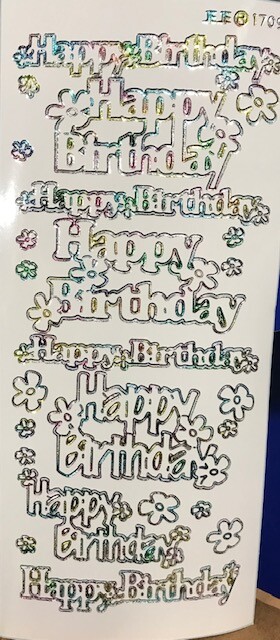 JEJE® 1709
Happy Birthday
Happy
Birthday
Happy Birthday
Happy
Birthday
Happy Birthday
Happy
Birthday
Happy
Birthday
Happy Birthday